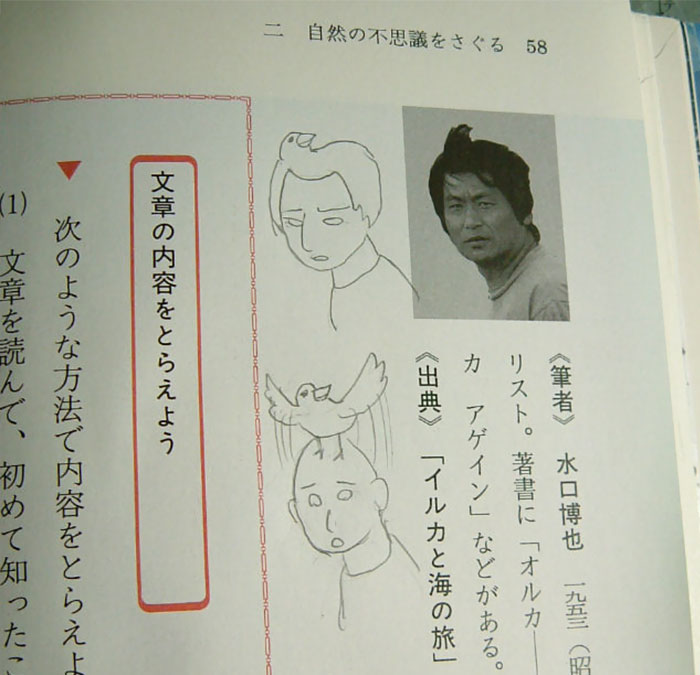 二 自然の不思議をさぐる 58
《筆者》 水口博也 一九五三(昭
リスト。著書に「オルカ
カ アゲイン」などがある。
《出典》「イルカと海の旅」
文章の内容をとらえよう
▼ 次のような方法で内容をとらえよ
(1) 文章を読んで、初めて知ったこ